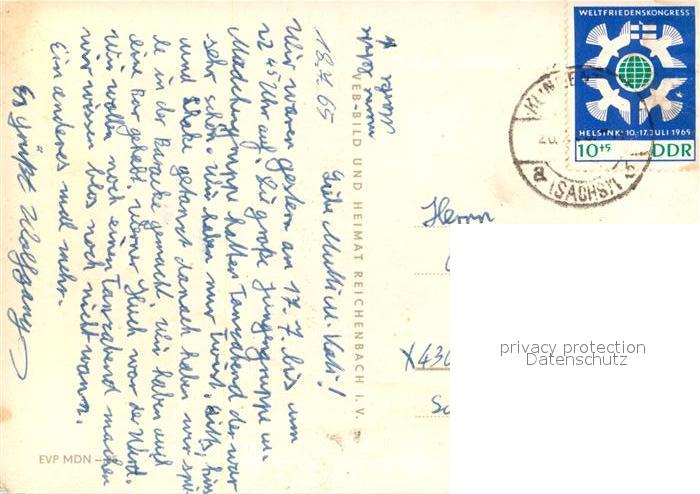 18.7.65
Liebe Mutti u. Vati!
Wir waren gestern am 17.7. bis um
22 45 Uhr auf. Die große Jungengruppe u.
Mädchengruppe hatten Tanzabend der war
sehr schön. Wir haben nur Twist,
und Shake getanzt danach haben wir
in der Baracke gemacht. Wir haben auch
eine Bar gehabt. Werner Hluch war der Wirt.
Wir wollen noch einen Tanzabend machen
wir wissen blos noch nicht wann.
Ein anderes mal mehr.
Es grüßt Wolfgang
VEB-BILD UND HEIMAT REICHENBACH I. V.
EVP MDN
WELTFRIEDENSKONGRESS
HELSINKI 10.-17. JULI 1965
10+5 DDR
a
(SACHS)
Herrn
X430
privacy protection
Datenschutz